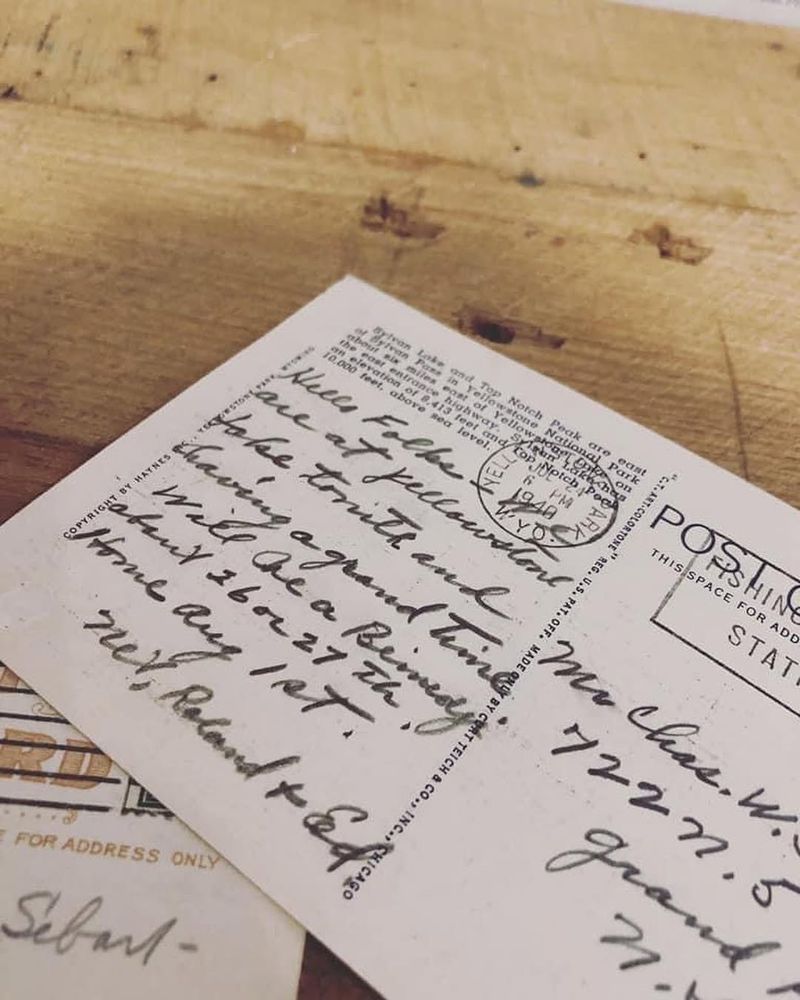 Sylvan Lake and Top Notch Peak are east
of Sylvan Pass in Yellowstone National Park
about six miles east of Yellowstone Lake on
the east entrance highway. Sylvan Lake has
an elevation of 8,413 feet and Top Notch Peak
10,000 feet, above sea level.
YELL PARK
6 PM
WYO.
Hello Folks - we
are at Yellowstone
Lake tonite and
having a grand time
Will be a
about 26 or 27 th.
Home Aug 1st.
Roland & Ed
COPYRIGHT BY HAYNES INC. YELLOWSTONE PARK, WYOMING
"C.T. ART-COLORTONE" REG. U.S. PAT. OFF. MADE ONLY BY CURT TEICH & CO., INC., CHICAGO
POST C
THIS SPACE FOR ADD
FISHING
STAT
Mr Chas. W.
722 N. 5
Grand
N.
RD
E FOR ADDRESS ONLY